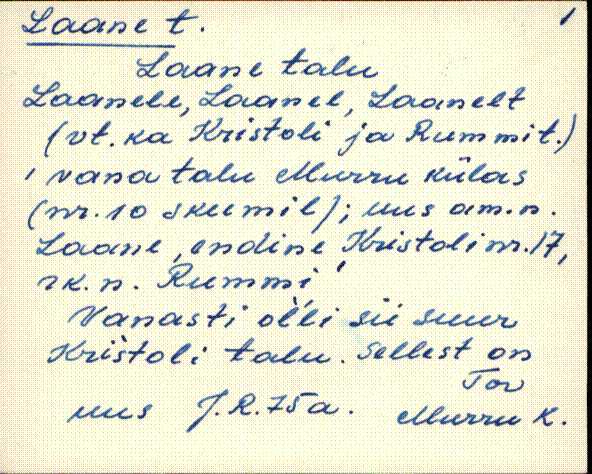 Laane t. 1
Laane talu
Laanele, Laanel, Laanelt
(vt. ka Kristoli ja Rummi t.)
' vana talu Murru külas
(nr. 10 skeemil); uus am. n.
Laane, endine Kristoli nr. 17,
rk. n. Rummi '
Vanasti ol̀li sii suur
Kristoli talu. Sellest on
Tor
uus J. R. 75 a. Murru k.